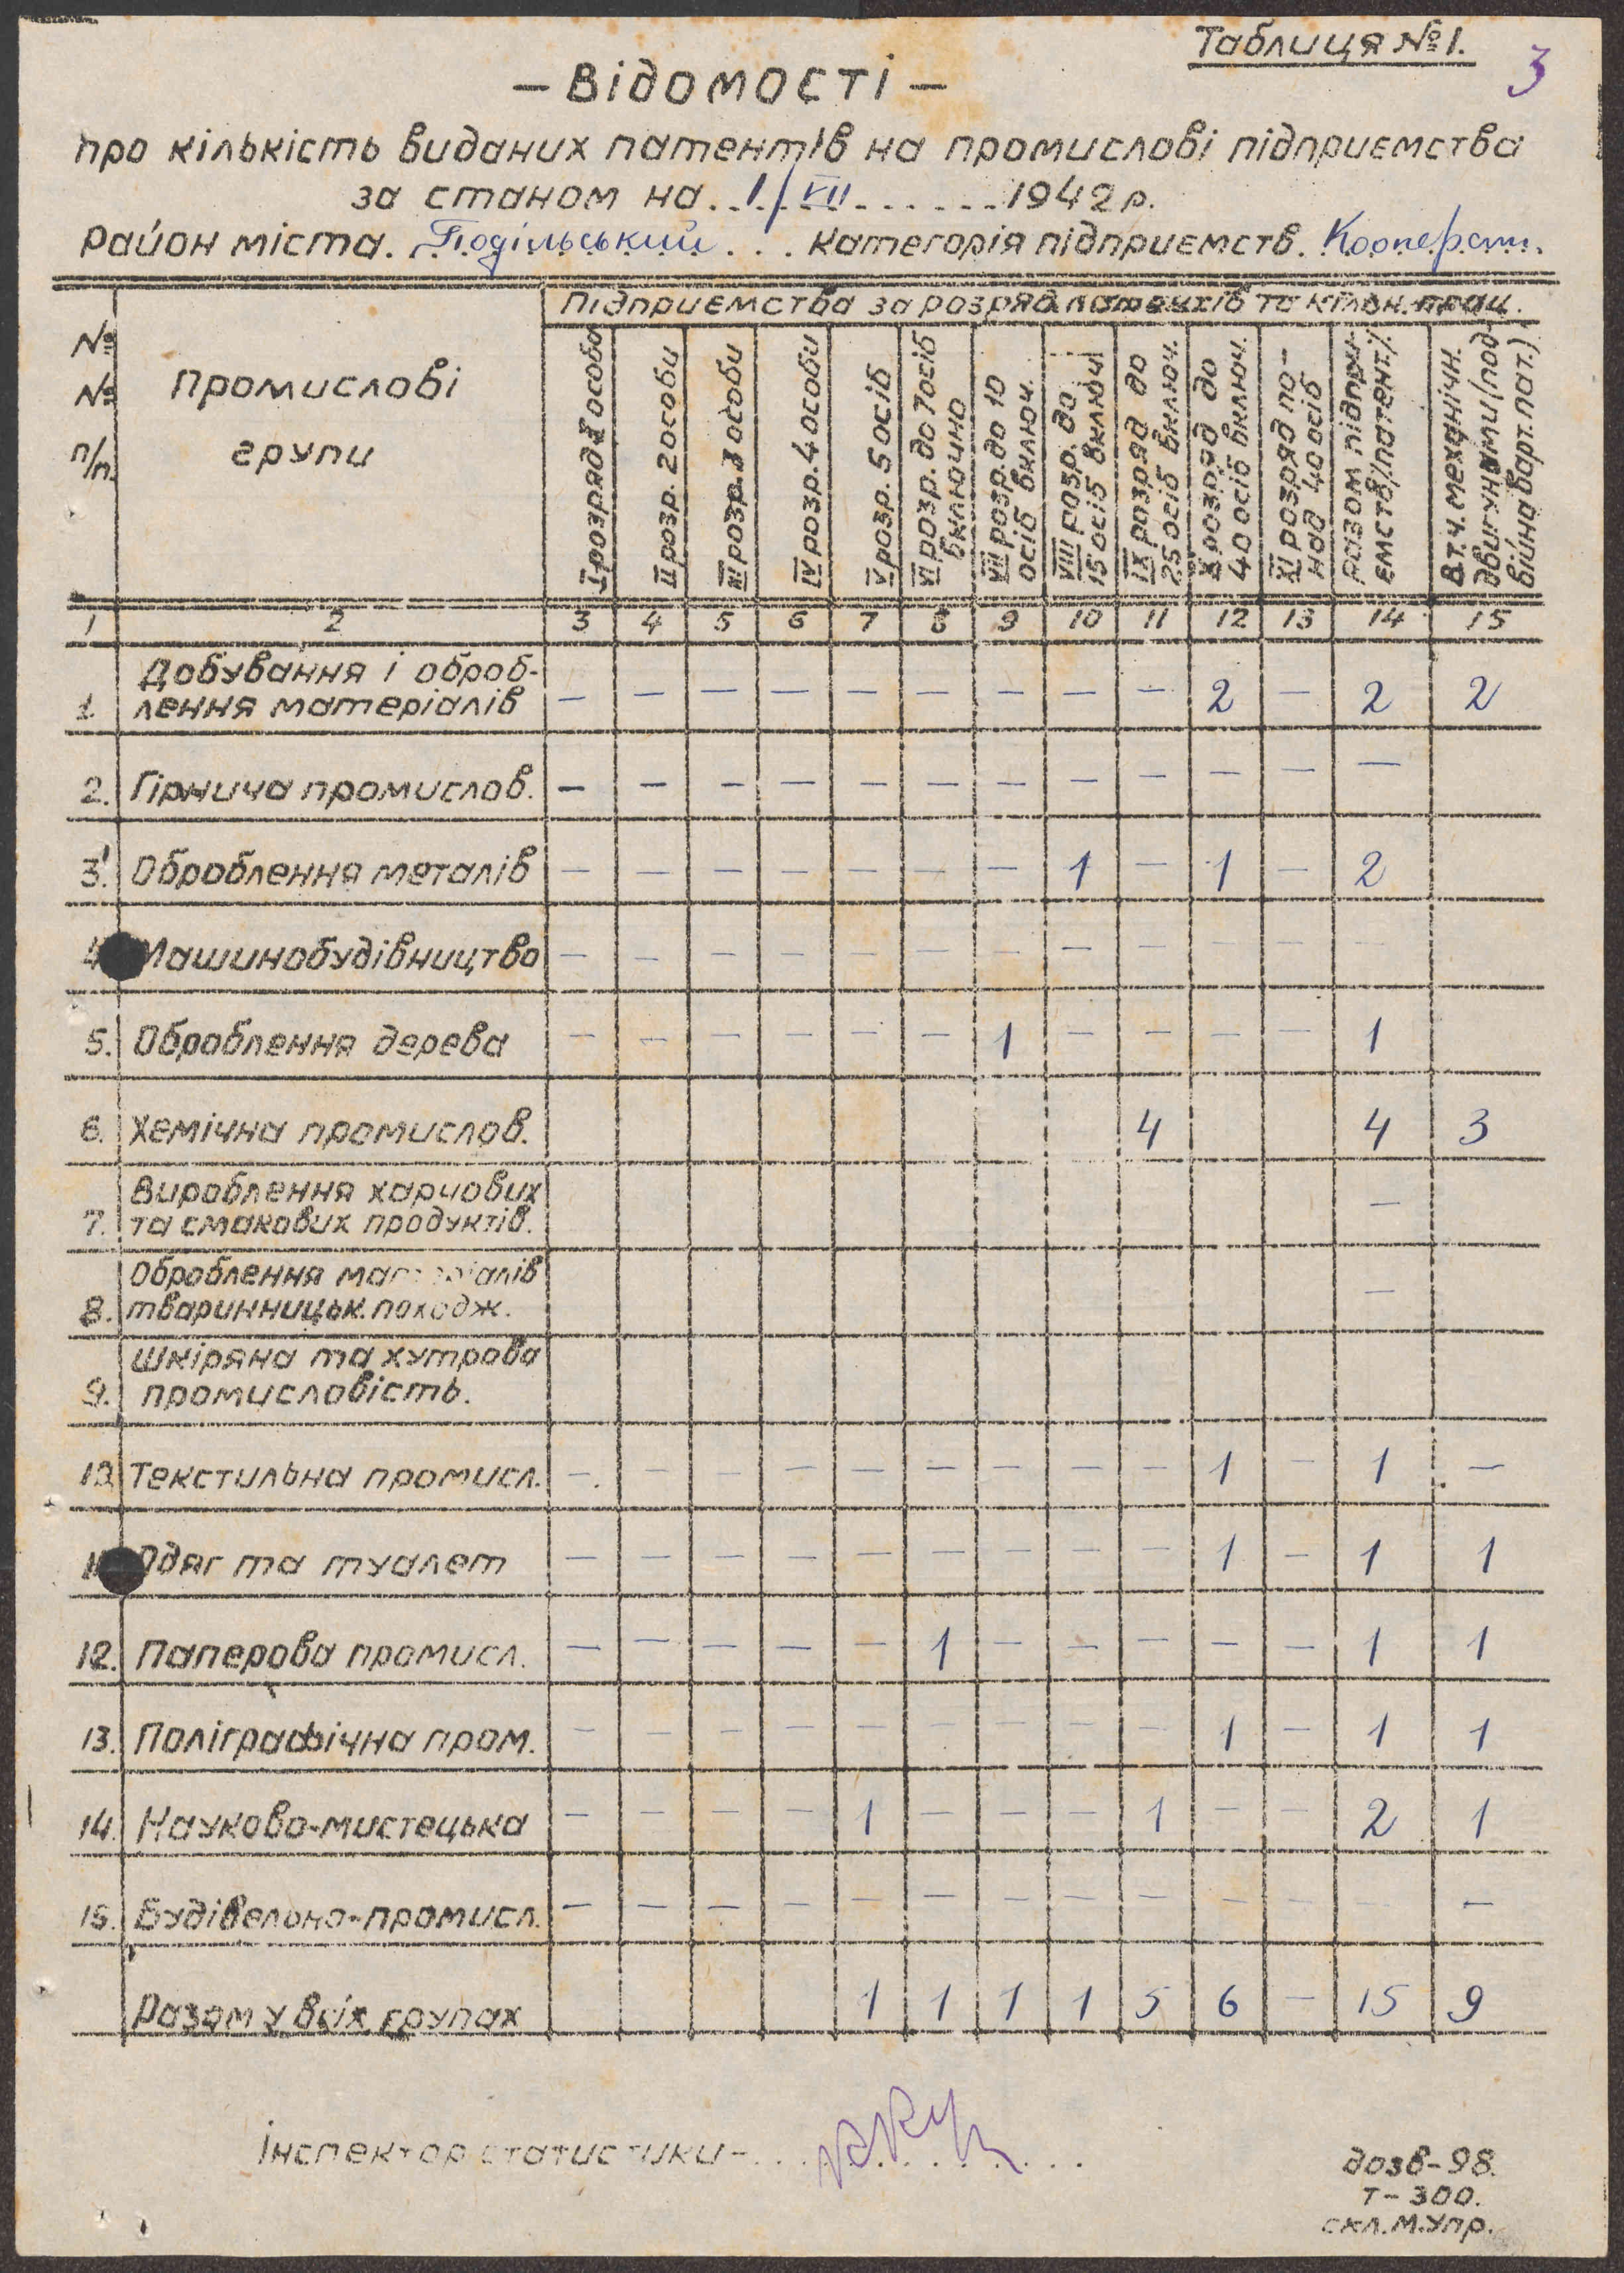 Таблиця №1.
3
— Відомості —
про кількість виданих патентів на промислові підприємства
за станом на . 1/VII . . . . . . 1942 р.
район міста. Подільський . . . категорія підприємств. Кооперат.
№ № п/п.
Промислові групи
Підприємства за розряд. патентів та кільк. прац.
I розряд 1 особа
II розр. 2 особи
III розр. 3 особи
IV розр. 4 особи
V розр. 5 осіб
VI розр. до 7 осіб включно
VII розр. до 10 осіб включ.
VIII розр. до 15 осіб включ.
IX розряд до 25 осіб включ.
X розряд до 40 осіб включ.
XI розряд понад 40 осіб
Разом підприємств/патент./
В т.ч. механічн. двигунами/подвійна варт. пат.)
1 2 3 4 5 6 7 8 9 10 11 12 13 14 15
1. Добування і оброблення матеріалів — — — — — — — — — 2 — 2 2
2. Гірнича промислов. — — — — — — — — — — — —
3. Оброблення металів — — — — — — — 1 — 1 — 2
4. Машинобудівництво — — — — — — — — — — — —
5. Оброблення дерева — — — — — — 1 — — — — 1
6. Хемічна промислов. 4 4 3
7. Вироблення харчових та смакових продуктів. —
8. Оброблення матеріалів тваринницьк. походж. —
9. Шкіряна та хутрова промисловість.
10. Текстильна промисл. — — — — — — — — — 1 — 1 —
11. Одяг та туалет — — — — — — — — — 1 — 1 1
12. Паперова промисл. — — — — — 1 — — — — — 1 1
13. Поліграфічна пром. — — — — — — — — — 1 — 1 1
14. Науково-мистецька — — — — 1 — — — 1 — — 2 1
15. Будівельно-промисл. — — — — — — — — — — — — —
Разом у всіх групах 1 1 1 1 5 6 — 15 9
Інспектор статистики- . . . . . . . . . .
дозв-98.
т-300.
скл. М.Упр.